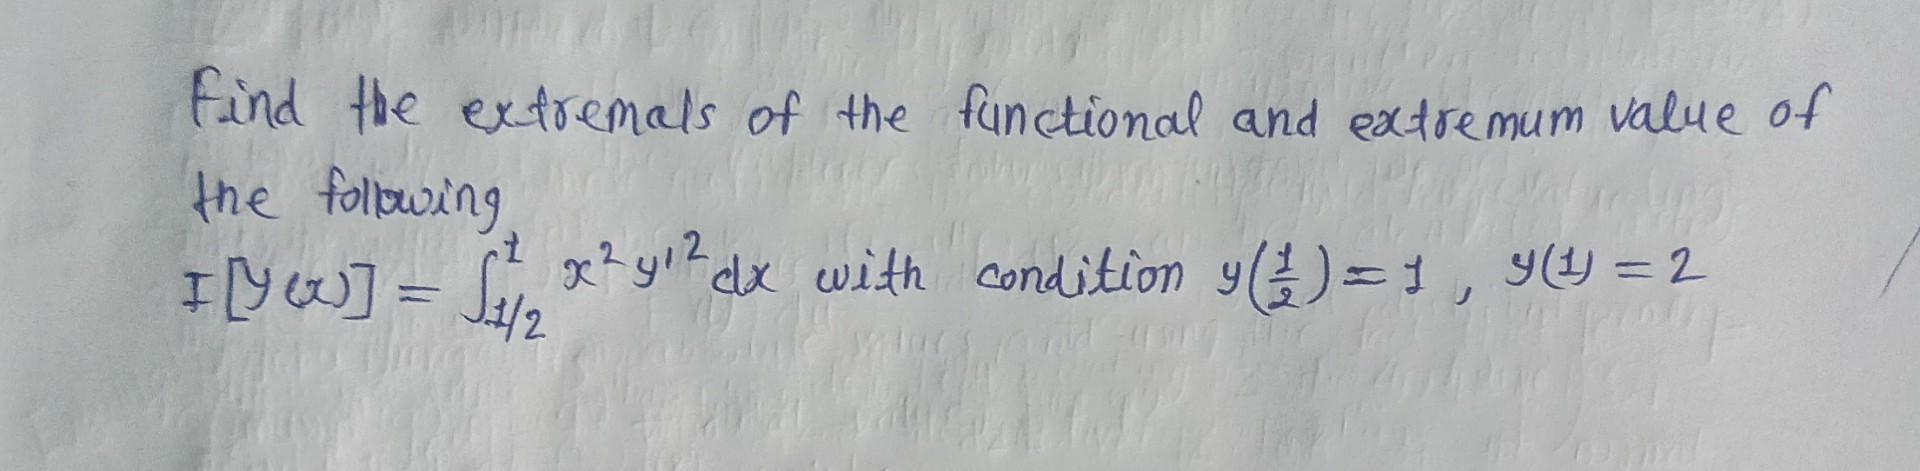 Find the extremals of the functional and extremum value of
the following
I[y(x)] = ∫₁/₂¹ x² y'² dx with condition y(1/2) = 1, y(1) = 2